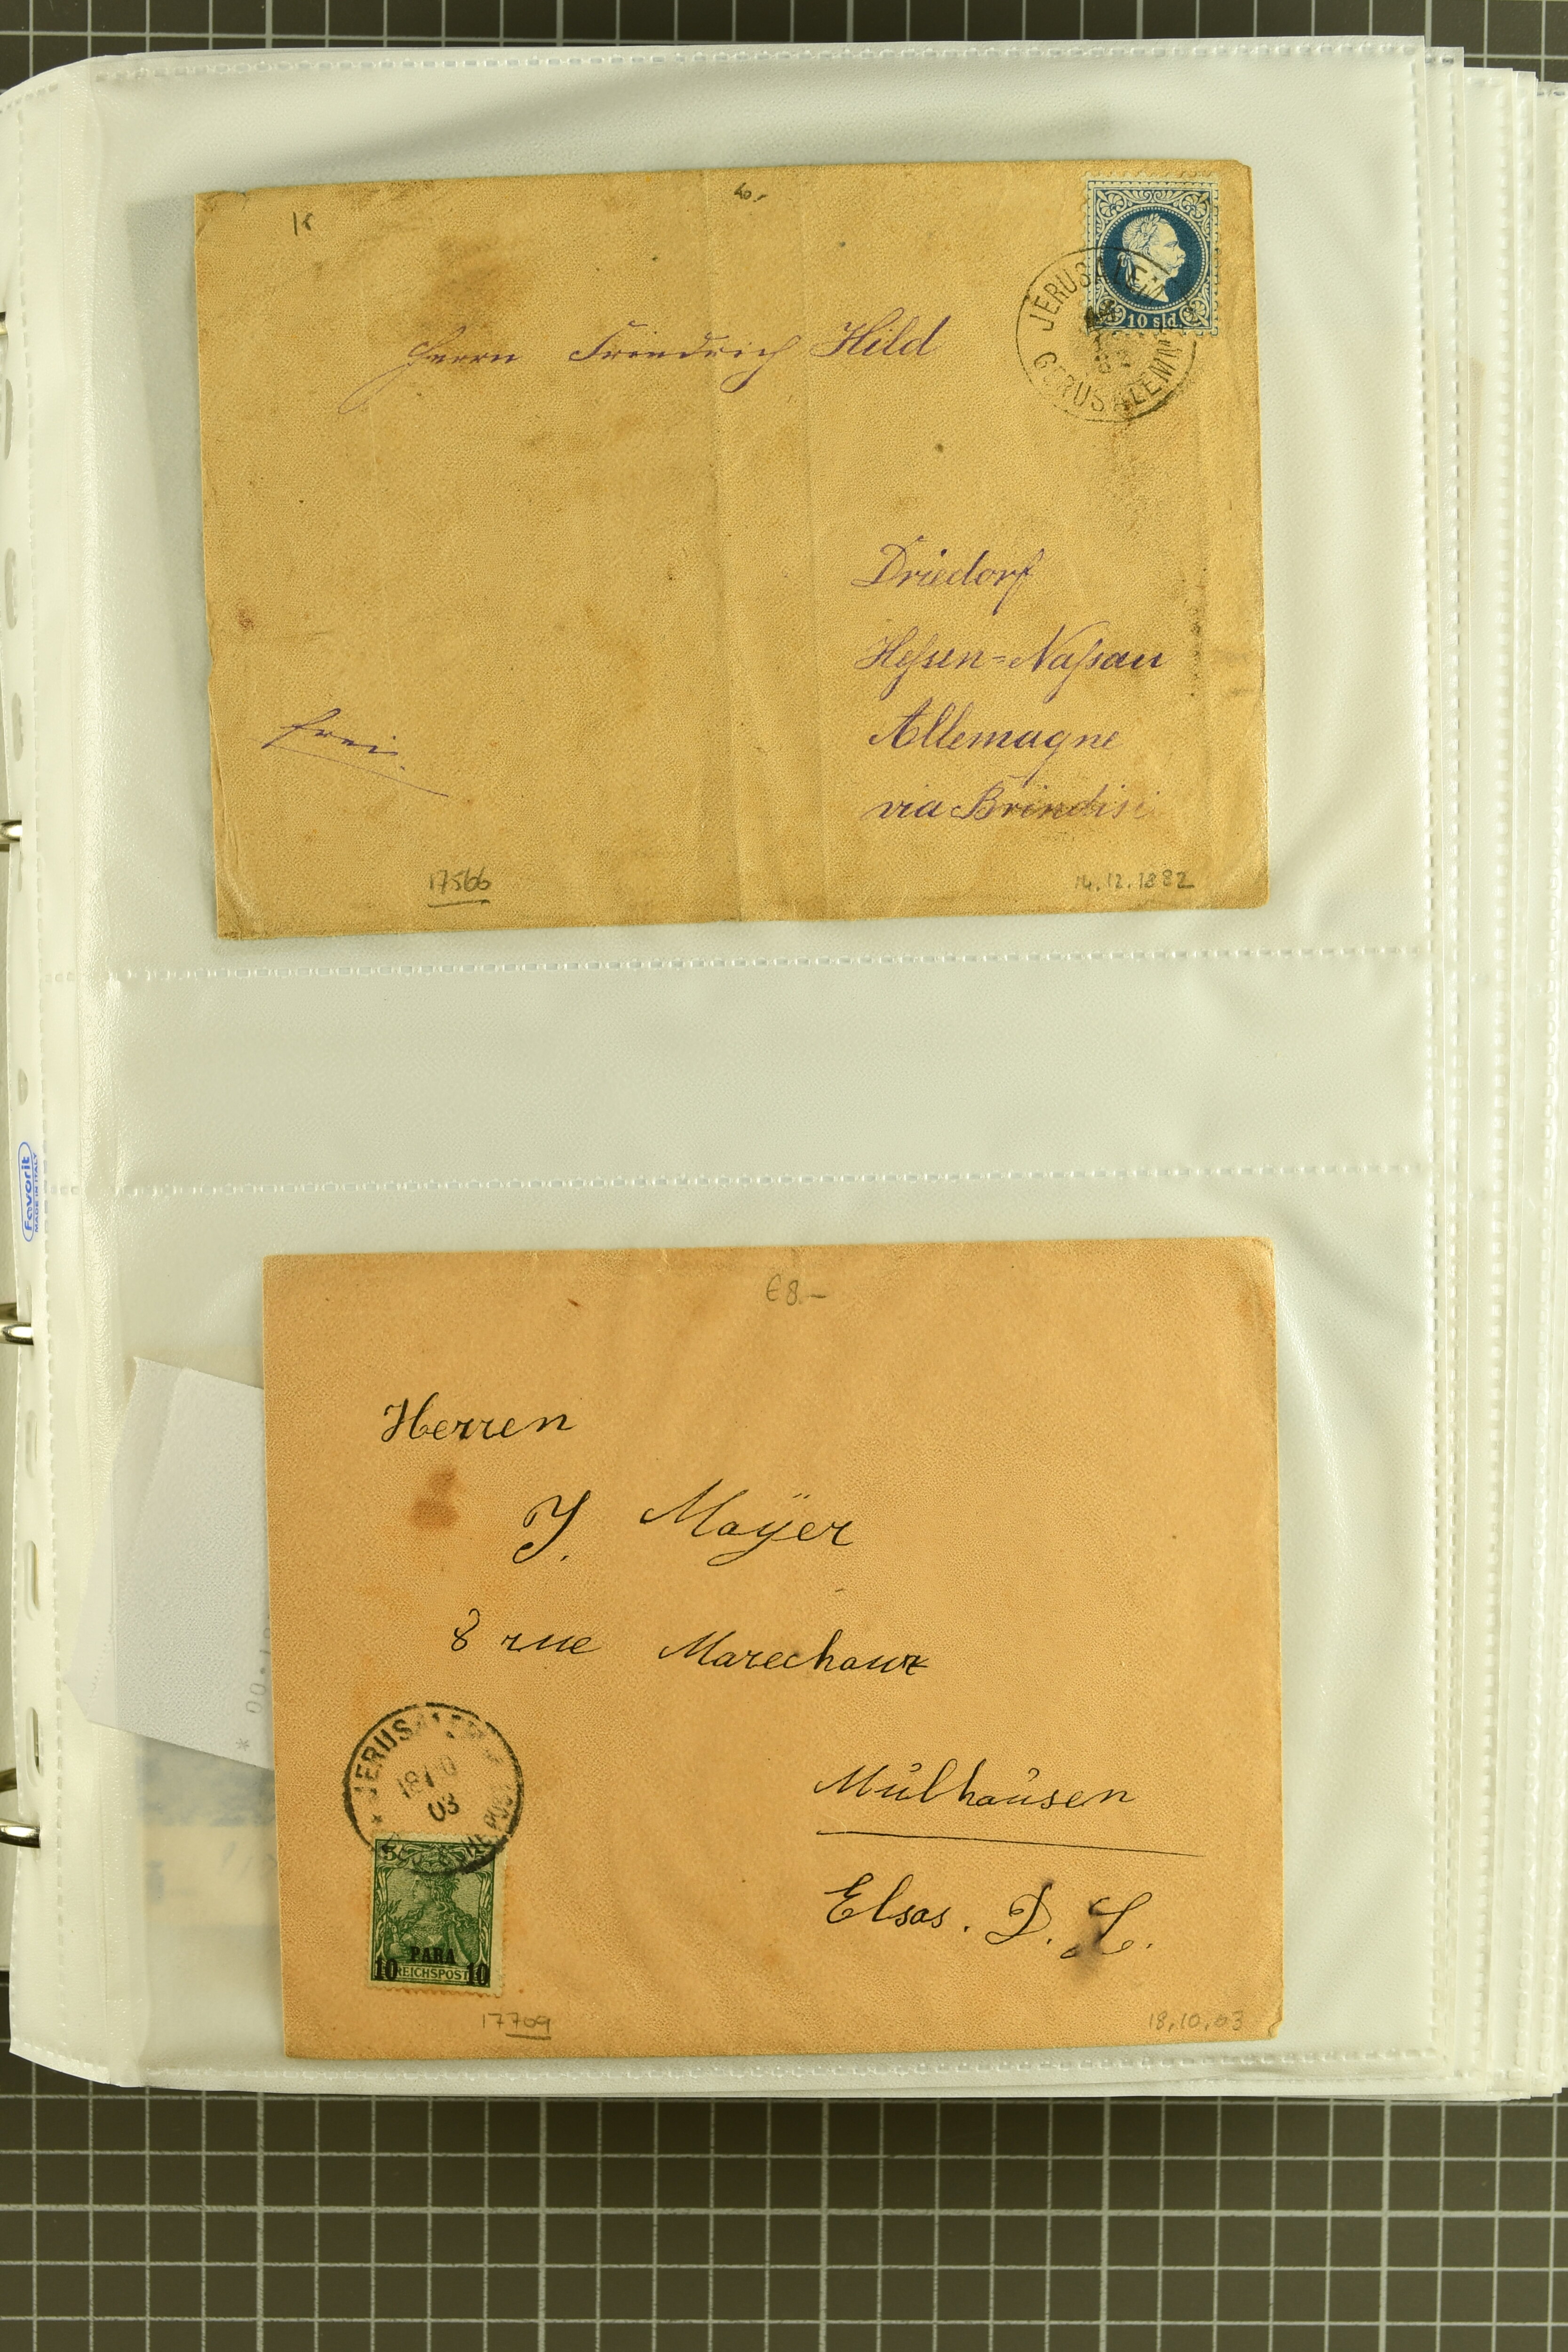 40.-
10 sld.
JERUSALEM
GERUSALEMME
Herrn Friedrich Hild
Driedorf
Hessen=Nassau
Allemagne
via Brindisi
frei.
17566
14.12.1882
Favorit
MADE IN ITALY
€8.-
Herren
J. Mayer
8 rue Marechaux
Mülhausen
Elsas. D.
JERUSALEM
18 10
03
DEUTSCHE POST
PARA
10 REICHSPOST 10
17709
18.10.03